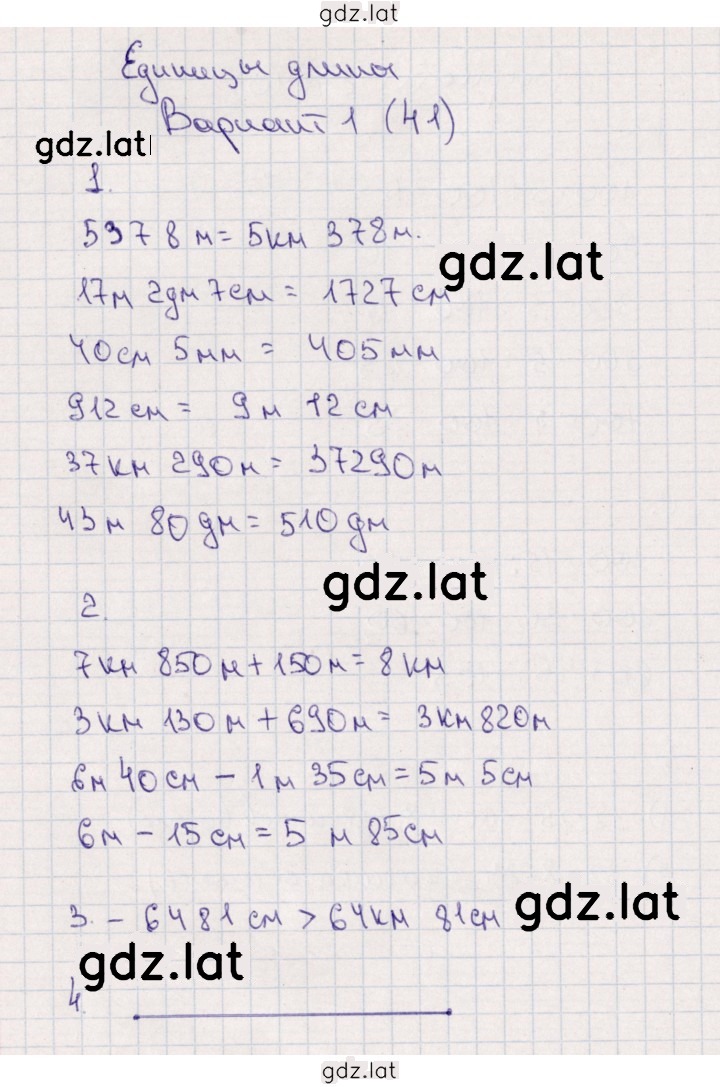 gdz.lat
Единицы длины
Вариант 1 (41)
gdz.lat
1.
5378 м = 5км 378м.
gdz.lat
17м 2дм 7см = 1727 см
40см 5мм = 405мм
912см = 9м 12см
37км 290м = 37290м
43м 80дм = 510дм
gdz.lat
2.
7км 850м + 150м = 8км
3км 130м + 690м = 3км 820м
6м 40см - 1м 35см = 5м 5см
6м - 15см = 5 м 85см
3. - 6481см > 64км 81см
gdz.lat
gdz.lat
4.
gdz.lat